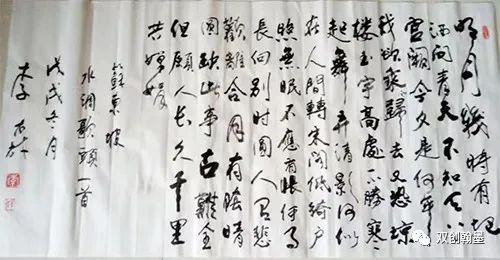 明月幾時有把
酒问青天不知天上
宫阙今夕是何年
我欲乘歸去又恐瓊
楼玉宇高處不勝寒
起舞弄清影何似
在人間轉朱阁低绮户
照無眠不應有恨何事
長向别時圆人有悲
歡離合月有陰晴
圆缺此事古難全
但願人長久千里
共嬋娟
蘇東坡
水调歌頭一首
戊戌冬月
双创翰墨